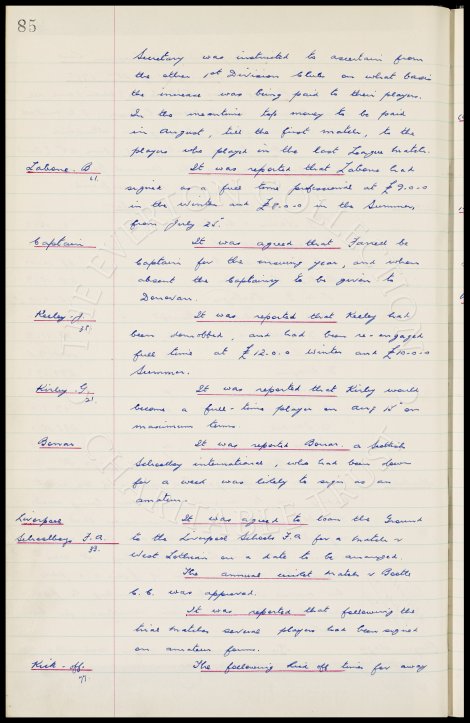 85
Secretary was instructed to ascertain from
the other 1st Division Clubs on what basis
the increase was being paid to their players.
In the meantime top money to be paid
in August, till the first match, to the
players who played in the last League match.
Labone. B It was reported that Labone had
61. signed as a full time professional at £9.0.0
in the Winter and £8.0.0 in the Summer,
from July 25th.
Captain It was agreed that Farrell be
Captain for the ensuing year, and when
absent the Captaincy to be given to
Donovan.
Keeley. J. It was reported that Keeley had
58. been demobbed, and had been re-engaged
full time at £12.0.0 Winter and £10.0.0
Summer.
Kirby. G. It was reported that Kirby would
21. become a full-time player on Aug 15th on
maximum terms.
Bonar It was reported Bonar, a Scottish
Schoolboy international, who had been down
for a week was likely to sign as an
amateur.
Liverpool It was agreed to loan the Ground
Schoolboys F.A. to the Liverpool Schools F.A for a match v
33. West Lothian on a date to be arranged.
The annual cricket match v Bootle
C.C. was approved.
It was reported that following the
trial matches several players had been signed
on amateur forms.
Kick-off. The following kick off times for away
71.
THE EVERTON COLLECTION
CHARITABLE TRUST